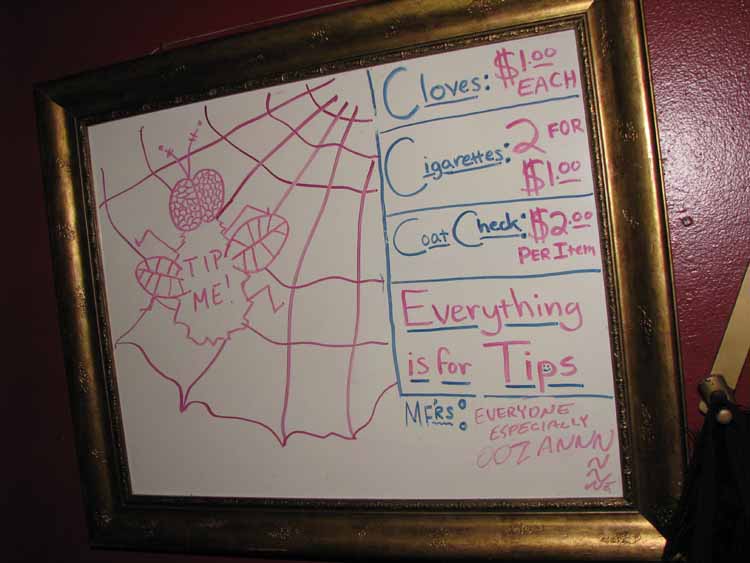 TIP
ME!
Cloves: $1.00
EACH
Cigarettes: 2 FOR
$1.00
Coat Check: $2.00
PER Item
Everything
is for Tips
MFRS: EVERYONE
ESPECIALLY